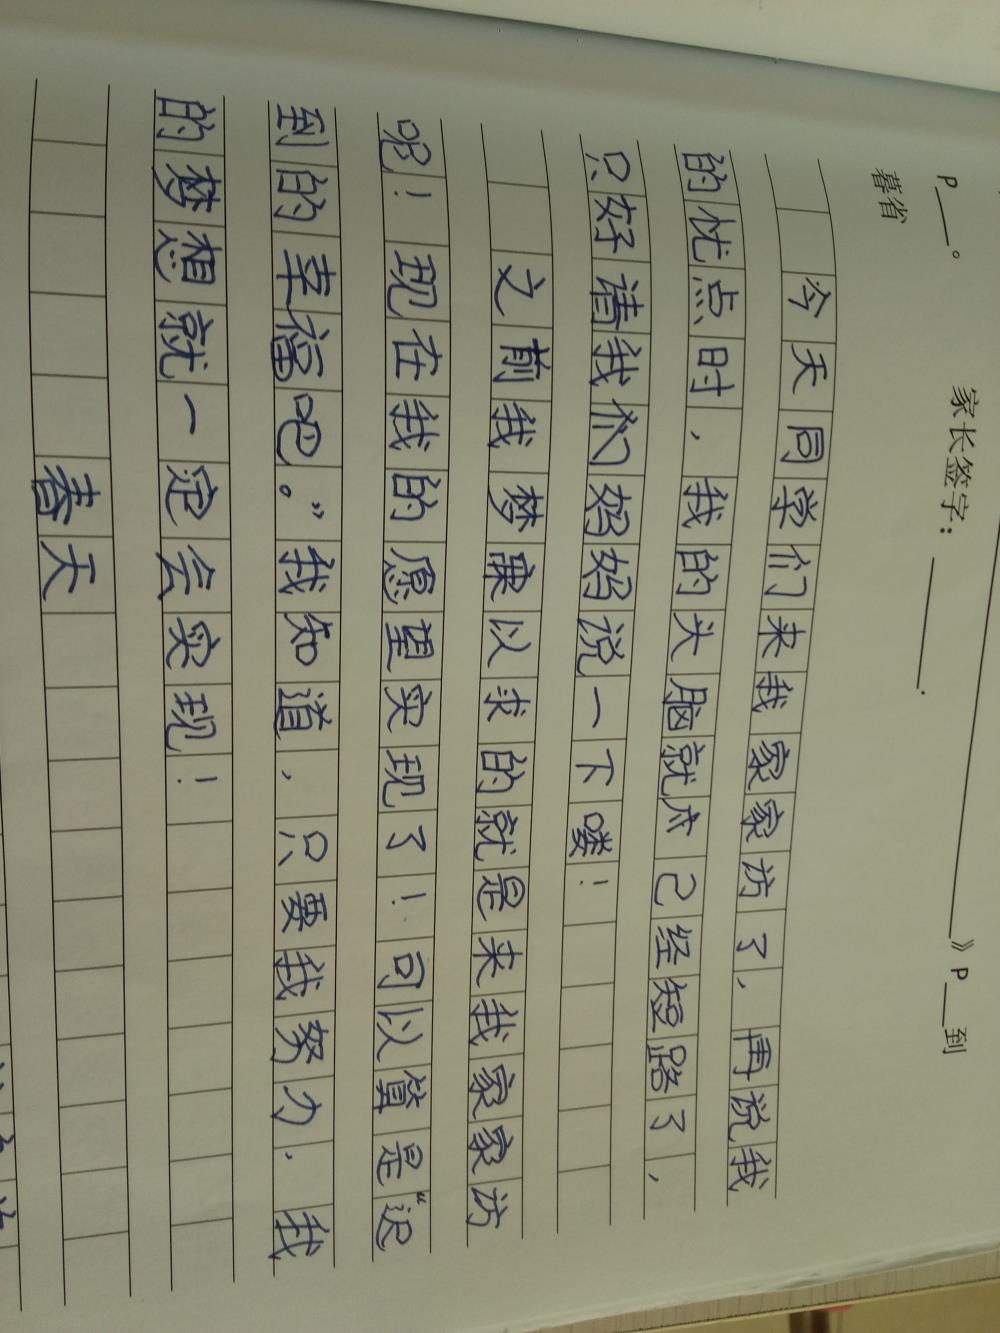 》P___到
P___。 家长签字：________.
暮省
今天同学们来我家家访了，再说我
的忧点时，我的大脑就术己经短路了，
只好请我们妈妈说一下喽！
之前我梦寐以求的就是来我家家访
呢！现在我的愿望实现了！可以算是“迟
到的幸福吧。”我知道，只要我努力．我
的梦想就一定会实现！
春天